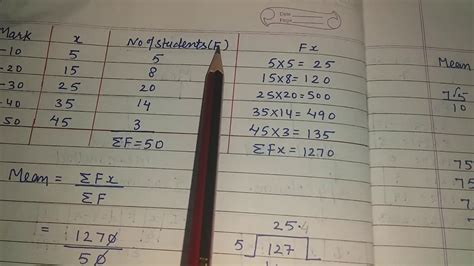 Mark x No of students(F) Fx
-10 5 5 5x5 = 25
-20 15 8 15x8= 120
-30 25 20 25x20 = 500
-40 35 14 35x14 = 490
50 45 3 45x3= 135
ΣF=50 ΣFx = 1270
Mean = ΣFx
ΣF
= 1270
50
25.4
5 127
Date
Page
Mean
7√5
10
75
75
75